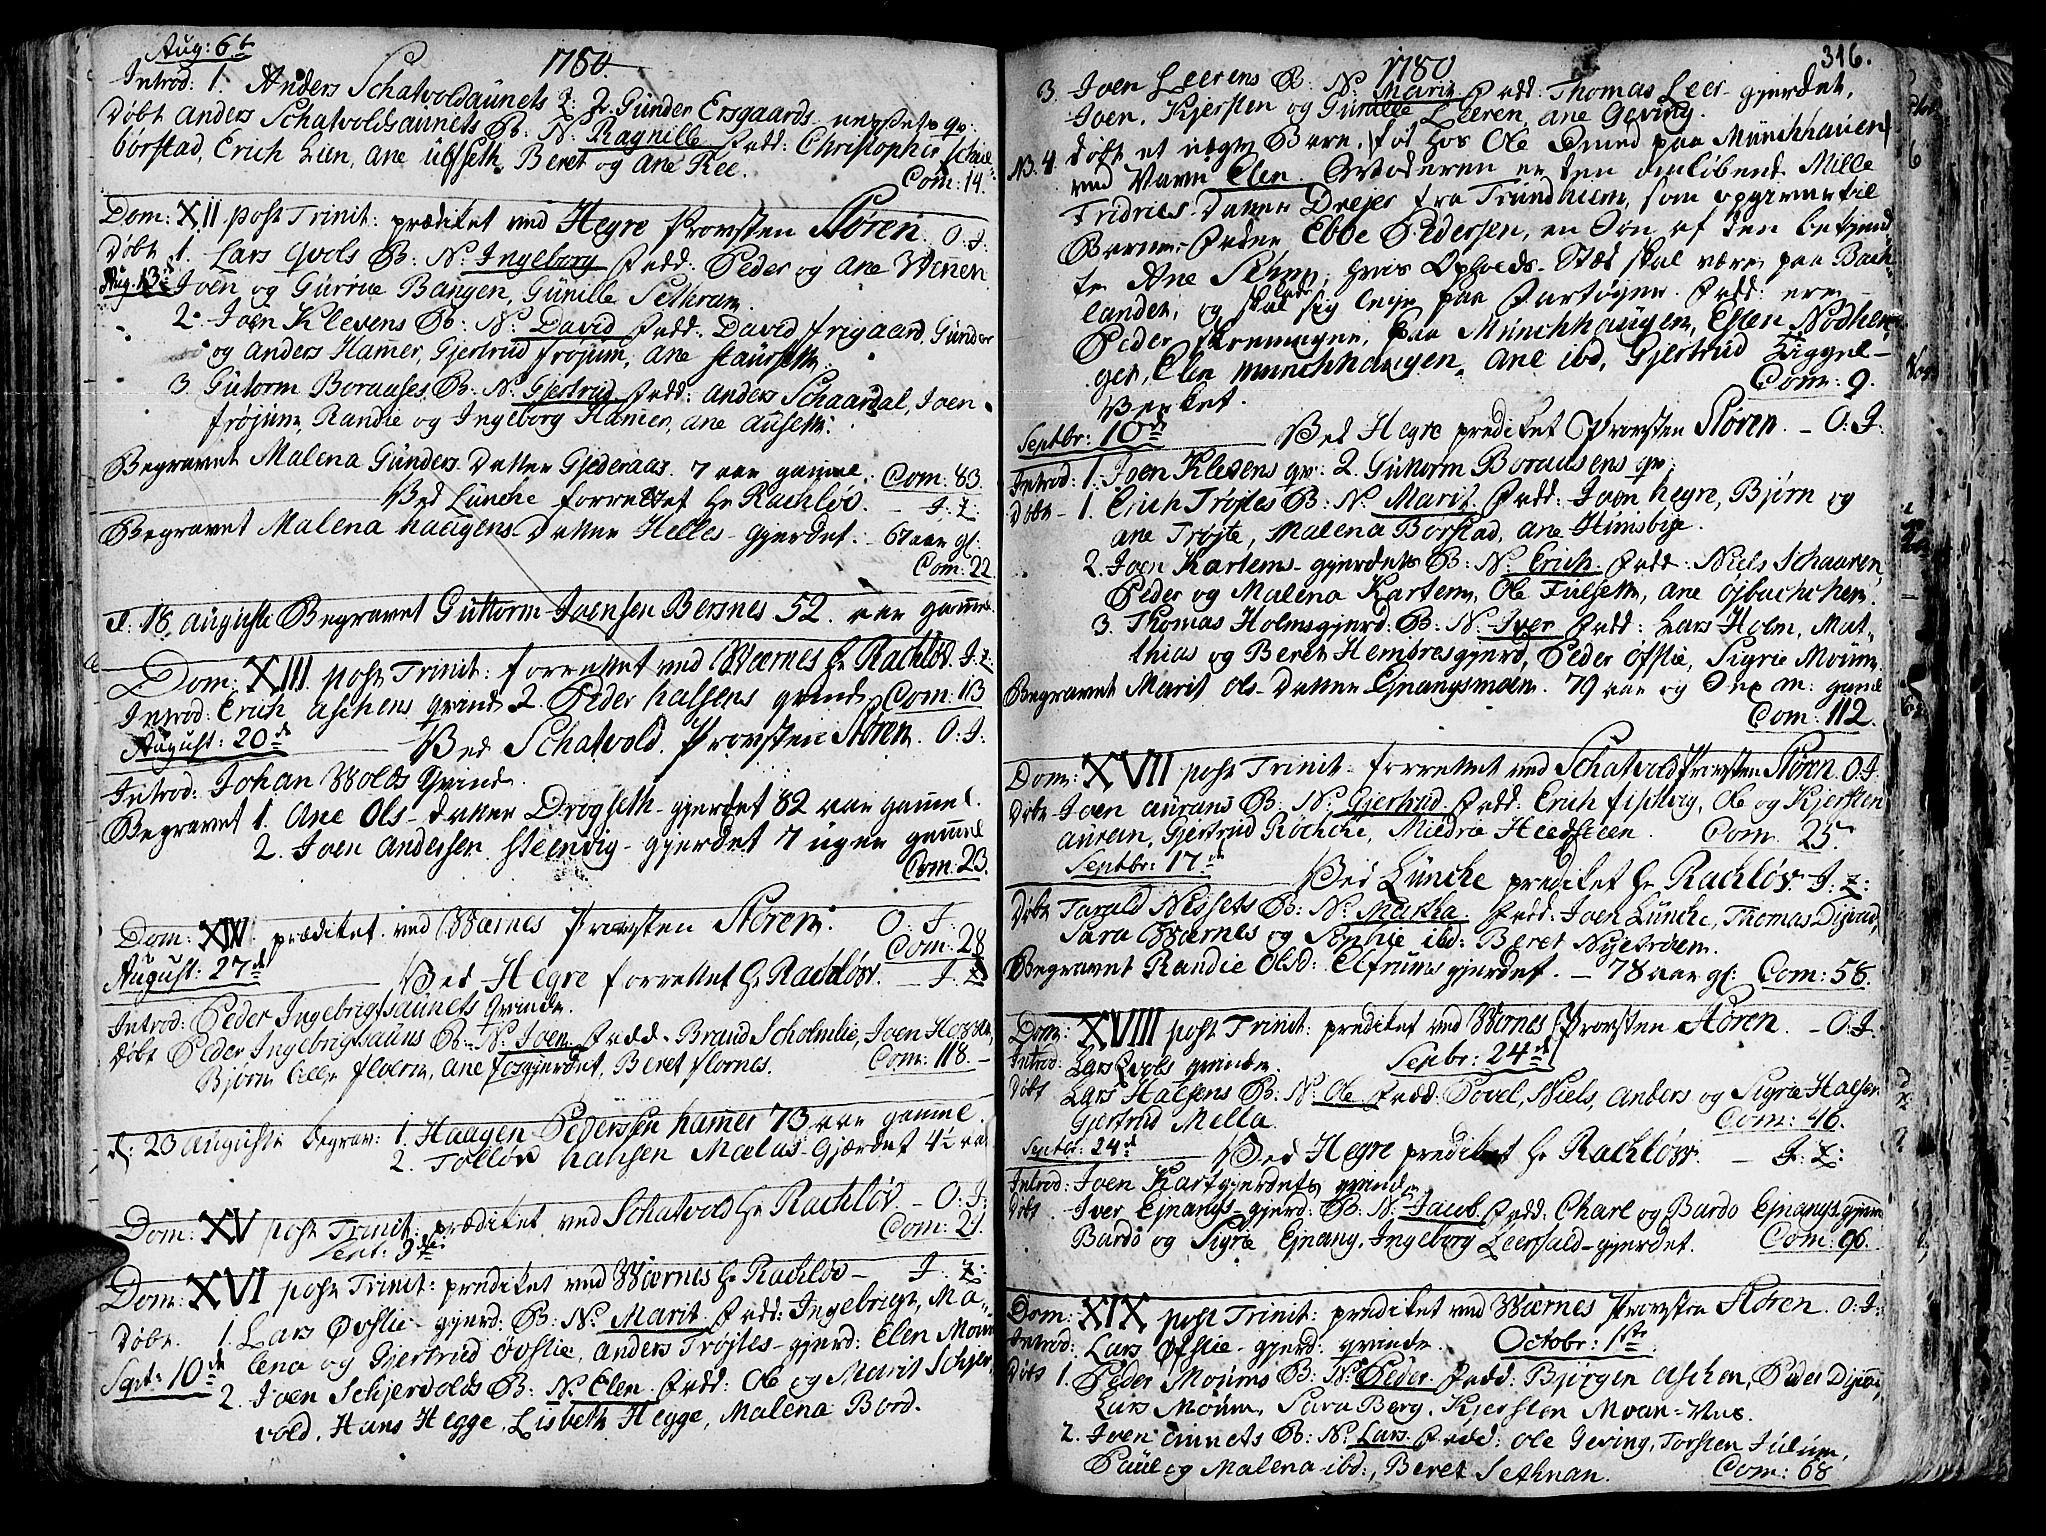 Aug: 6t
1780.
Introd: 1. Anders Schatvoldaünets Q: 2. Günder Ersgaards-neessets qv:
Døbt Anders Schatvoldsaunets B: N: Ragnille Fadd: Christopher Schiel-
børstad, Erich Lien, Ane Ulfseth, Beret og Ane Ree.
Com: 14.
Dom: XII post Trinit: prædiket ved Hegre Provsten Støren. O: J:
Døbt 1. Lars Qvols B: N: Ingeborg Fadd: Peder og Ane Wennen
Aug. 13de Joen og Gürrüe Bangen, Günille Sethran.
2. Joen Klevens B: N: David Fadd: David Frigaard, Günder
og Anders Hamer, Gjertrud Frøjum, Ane Staürseth.
3. Gütorm Boraases B: N: Gjertrud Fadd: Anders Schaardal, Joen
Frøjum, Randie og Ingeborg Hamer, Ane Aüseth.
Begravet Malena Günders Datter Gjederaas. 7 aar gamel. Com: 83.
Ved Lünche forrettet Hr Rachløv. J: L:
Begravet Malena Haagens-Datter Helles-gjerdet. 67 aar gl:
Com: 22
d: 18 Augusti Begravet Güttorm Joensen Bersnes 52. aar gammel.
Dom: XIII post Trinit: forrettet ved Wærnes Hr Rachløv. J: L:
Introd: Erich Aschens qvinde 2. Peder Halsens qvinde Com: 113
August: 20de Ved Schatvold. Provsten Støren. O: J:
Introd: Johan Wolds Qvinde.
Begravet 1. Ane Ols-Datter Drogseth-gjerdet 82 aar gammel.
2. Joen Andersen Steenvig-gjerdet 7 uger gammel
Com: 23.
Dom: XIV. prædiket ved Wærnes Provsten Støren. O: J:
Com: 28
August: 27de Ved Hegre forrettet Hr Rachløv. J: L
Introd: Peder Ingebrigtsaünets Qvinde.
Døbt Peder Ingebrigtsaüns B: N: Joen Fadd: Brand Scholmlie, Joen Hegre,
Bjørn Lille Floren, Ane Fosgjerdet, Beret Flornes. Com: 118.
d: 23 Augusti begrav: 1. Haagen Pederssen Hamer 73 aar gamel.
2. Tolløv Hansen Mælas-Gjærdet 4½ aar
Dom: XV post Trinit: prædiket ved Schatvold Hr Rachløv - O: J:
Sept: 3de Com: 21.
Dom: XVI post Trinit: prediket ved Wærnes Hr Rachløv - J: L:
Døbt 1. Lars Øvstie-gjerd: B: N: Marit Fadd: Ingebrigt, Ma-
lena og Gjertrud Øvstie, Anders Trøjtes-gjerd: Elen Moum
Sept: 10de 2. Joen Schjervolds B: N: Elen. Fadd: Ole og Marit Schjer-
vold, Hans Hegge, Lisbeth Hegge, Malena Bord.
1780
316.
3. Joen Leerens B: N: Marit Fadd: Thomas Leer-gjerdet,
Joen, Kjersten og Gunille Leeren, Ane Geving.
NB. 4. Døbt et uægte Barn, fød hos Ole Smed paa Münchhauen
ved Navn Elen. Moderen er den omløbende Mille
Fridrics-Datter Drejer fra Trundhiem, som opgiver til
Barne-Fader Ebbe Pedersen, en Søn af den bekiend-
te Ane Sehm, hvis Opholds-Stæd skal være paa Bach-
landet, og skal lade sig leje paa Fartøyer. Fadd: ere-
Peder Skremagen, paa Münchhaugen, Ellen Nødhen-
gen, Elen Münchhaugen, Ane ibd, Gjertrud Ligger-
Verket. Com: 9.
Septbr: 10de Ved Hegre prediket Provsten Støren. - O: J:
Introd: 1. Joen Klevens qv: 2. Güttorm Boraasens qv:
Døbt 1. Erich Trøjtes B: N: Marit Fadd: Joen Hegre, Bjørn og
Ane Trøjte, Malena Borstad, Ane Himsbye.
2. Joen Kartems-gjerdets B: N: Erich Fadd: Niels Schaaren,
Peder og Malena Kartem, Ole Fulseth, Ane Øjbachchen.
3. Thomas Holmsgjerd: B: N: Iver Fadd: Lars Holm, Mat-
thias og Beret Hembresgjerd, Peder Øfstie, Sigrie Moum.
Begravet Marit Ols-Datter Ejnangsmoen. 79 aar og Sex M: gamel
Com: 112.
Dom: XVII post Trinit- forrettet ved Schatvold Provsten Støren. O: J:
Døbt Joen Aurans B: N: Gjertrud. Fadd: Erich Fischvig, Ole og Kjersten
Auran, Gjertrud Røchche, Mildrie Heedsteen. Com: 25.
Septbr: 17de Ved Lünche prediket Hr Rachløv. J: L:
Døbt Tarald Nessets B: N: Martha. Fadd: Joen Lünche, Thomas Dijrad,
Sara Wærnes og Sophie ibd: Beret Nyetrøen.
Begravet Randie Olsd: Elfrums gjerdet. - 78 aar gl: Com: 58.
Dom: XVIII post Trinit: prediket ved Wærnes Provsten Støren. - O: J:
Introd: Lars Qvols qvinde. Septbr: 24de
Døbt Lars Halsens B: N: Ole Fadd: Povel, Niels, Anders og Sigrie Halsen
Gjertrud Mella. Com: 40.
Septbr: 24de Ved Hegre prediket Hr Rachløv. - J: L:
Introd: Joen Kartgjerdets qvinde
Døbt. Iver Ejnangs-gjerd: B: N: Jacob Fadd: Charl og Bardo Ejnangsgjerd:
Bardo og Sigrie Ejnang, Ingeborg Leerfald-gjerdet. Com: 96.
Dom: XIX post Trinit: prediket ved Wærnes Provsten Støren. O: J:
Introd: Lars Øfstie-gjerd: qvinde. Octobr: 1ste
Døbt 1. Peder Moums B: N: Peder. Fadd: Bjørgen Aschen, Peder Dijva,
Lars Moum, Sara Berg, Kjersten Moan-Nes.
2. Joen Aunets B: N: Lars. Fadd: Ole Geving, Torsten Julum,
Paül og Malena ibd:, Beret Sethnan. Com: 68